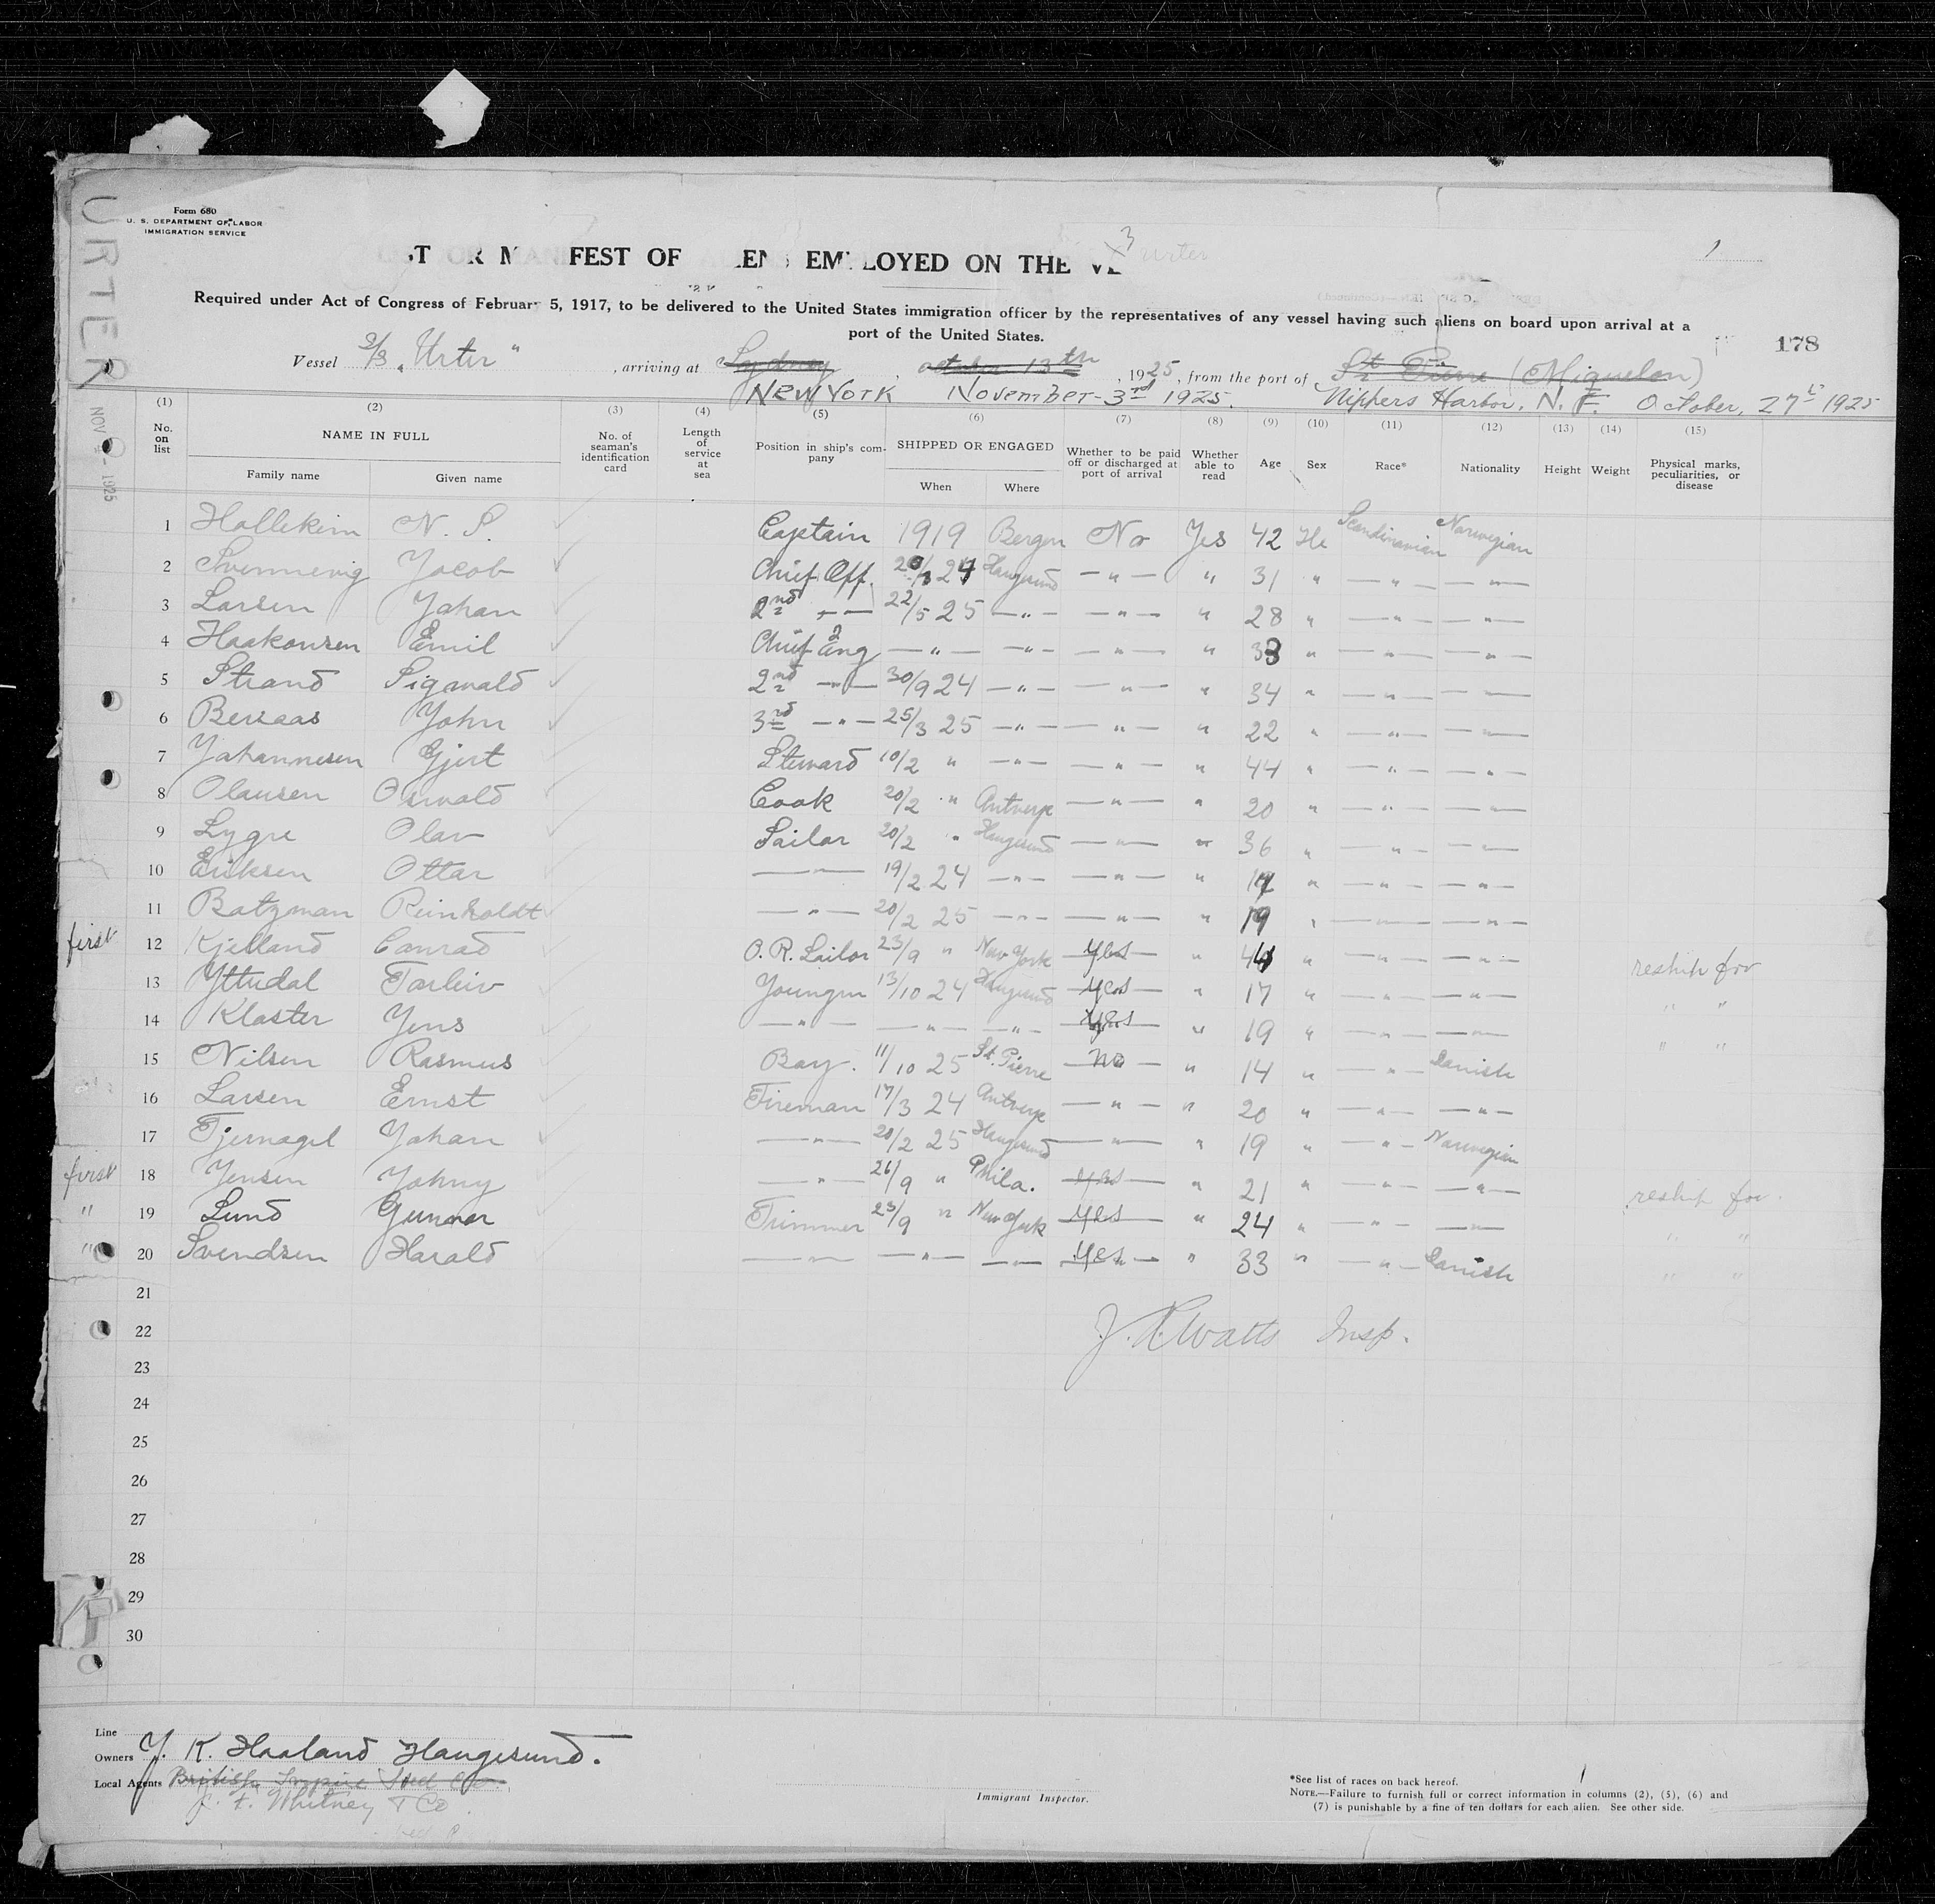 URTER
NOV 1925
Form 680
U. S. DEPARTMENT OF LABOR
IMMIGRATION SERVICE
FEST OF EMPLOYED ON THE
1
178
Required under Act of Congress of February 5, 1917, to be delivered to the United States immigration officer by the representatives of any vessel having such aliens on board upon arrival at a
port of the United States.
Vessel S/S "Urter" , arriving at Sydney , october 13th , 1925, from the port of St Pierre (Miquelon)
New York November 3rd 1925. Nippers Harbor, N. F. October, 27th 1925
(1) (2) (3) (4) (5) (6) (7) (8) (9) (10) (11) (12) (13) (14) (15)
No. on list NAME IN FULL No. of seaman's identification card Length of service at sea Position in ship's company SHIPPED OR ENGAGED Whether to be paid off or discharged at port of arrival Whether able to read Age Sex Race* Nationality Height Weight Physical marks, peculiarities, or disease
Family name Given name When Where
1 Hallekim N. S. Captain 1919 Bergen No Yes 42 He Scandinavian Norwegian
2 Svennevig Jacob Chief Off. 24 Haugesund — " — " 31 " — " — — " —
3 Larsen Johan 2nd — " — 22/5 25 — " — — " — " 28 " — " — — " —
4 Haakonsen Emil Chief Eng — " — — " — — " — " 33 " — " — — " —
5 Strand Sigwald 2nd — " — 30/9 24 — " — — " — " 34 " — " — — " —
6 Bersaas John 3rd — " — 25/3 25 — " — — " — " 22 " — " — — " —
7 Johannesen Gjert Steward 10/2 " — " — — " — " 44 " — " — — " —
8 Olausen Oswald Cook 20/2 " Antverp — " — " 20 " — " — — " —
9 Lygre Olav Sailor 20/2 " Haugesund — " — " 36 " — " — — " —
10 Eriksen Ottar — " — 19/2 24 — " — — " — " " — " — — " —
11 Botzman Reinholdt — " — 20/2 25 — " — — " — " 19 " — " — — " —
first 12 Kjelland Conrad O. R. Sailor 23/9 " New York Yes " 44 " — " — — " — reship for
13 Yttredal Torleiv Youngm 13/10 24 Haugesund Yes " 17 " — " — — " — " "
14 Kloster Jens — " — — " — — " — Yes " 19 " — " — — " — " "
15 Nilsen Rasmus Boy. 11/10 25 St. Pierre No " 14 " — " — Danish
16 Larsen Ernst Fireman 17/3 24 Antverp — " — " 20 " — " — — " —
17 Tjernagel Johan — " — 20/2 25 Haugesund — " — " 19 " — " — Norwegian
first 18 Jensen Johny — " — 26/9 " Phila. Yes " 21 " — " — — " — reship for
" 19 Lund Gunnar Trimmer 23/9 " New York Yes " 24 " — " — — " — " "
" 20 Svendsen Harald — " — — " — — " — Yes " 33 " — " — Danish " "
21
22 Watts Insp.
23
24
25
26
27
28
29
30
Line
Owners J. K. Haaland Haugesund.
Local Agents British Empire Steel Co.
J. F. Whitney & Co.
Immigrant Inspector.
*See list of races on back hereof.
NOTE.—Failure to furnish full or correct information in columns (2), (5), (6) and
(7) is punishable by a fine of ten dollars for each alien. See other side.